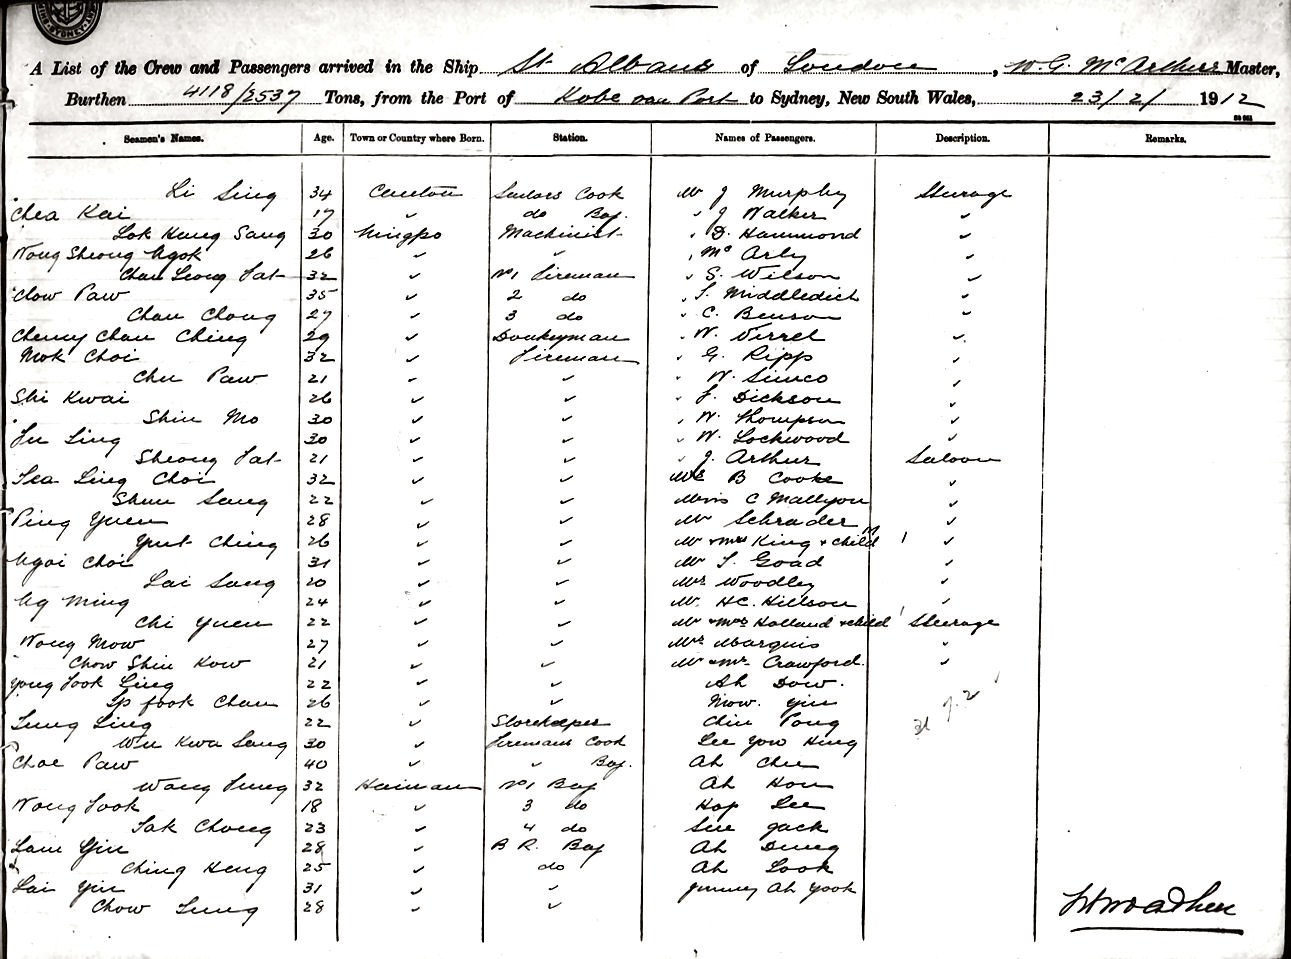 SYDNEY
A List of the Crew and Passengers arrived in the Ship St Albans of London, W.G. McArthur Master,
Burthen 4118/2537 Tons, from the Port of Kobe via Port to Sydney, New South Wales, 23/2/1912
Seamen's Names. Age. Town or Country where Born. Station. Names of Passengers. Description. Remarks.
Li Sing 34 Canton Sailors Cook Mr J Murphy Steerage
Chea Kai 17 " do Boy. " J Walker "
Lok Hang Sang 30 Ningpo Machinist " D. Hammond "
Wong Sheong Ngok 26 " " " Mc Arly "
Chan Leong Fat 32 " No 1 Fireman " S. Wilson "
Chow Paw 35 " 2 do " S. Middleditch "
Chan Chong 27 " 3 do " C. Benson "
Cheney Chan Ching 29 " Donkeyman " W. Virrel "
Mok Choi 32 " Fireman " G. Ripp "
Chu Paw 21 " " " W. Simco "
Shi Kwai 26 " " " F. Dickson "
Shiu Mo 30 " " " W. Thompson "
Fu Ling 30 " " " W. Lockwood "
Sheong Fat 21 " " " J. Arthur Saloon
Sea Ling Choi 32 " " Mrs B Cooke "
Shun Sang 22 " " Miss C Mallyon "
Ping Yuen 28 " " Mr Schrader "
Yut Ching 26 " " Mr & Mrs King & child M 1 "
Ngoi Choi 31 " " Mr S. Goad "
Lai Sang 20 " " Mrs Woodley "
Ng Ming 24 " " Mr. HC. Hillson "
Chi Yuen 22 " " Mr & Mrs Holland & child 1 Steerage
Wong Mow 27 " " Mrs Marquis "
Chow Shiu Kow 21 " " Mr & Mrs Crawford. "
Yong Fook Ling 22 " " Ah Dow.
Ip fook Chan 26 " " Mow. Yin
Lung Ling 22 " Storekeeper Chin Pong
Wu Kwa Sang 30 " Firemans Cook Lee Yow Hing
Choe Paw 40 " " Boy. Ah Chu
Wong Fung 32 Hainan No 1 Boy Ah Hon
Wong Fook 18 " 3 do Hop Lee
Sak Chong 23 " 4 do Sue Jack
Lam Yin 28 " B R. Boy Ah Dung
Ching Heng 25 " do Ah Look
Lai Yin 31 " " Jimmy Ah Yook
Chow Lung 28 " "